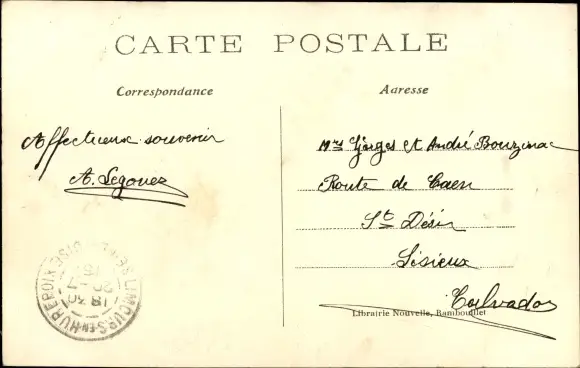 CARTE POSTALE
Correspondance
Adresse
Affectueux souvenir
A. Legouez
Mrs Gorges et André Bouzinac
Route de Caen
St Désir
Lisieux
Calvados
Librairie Nouvelle, Rambouillet
LIMOURS EN HUREPOIX SEINE-ET-OISE
18 30
20 -7